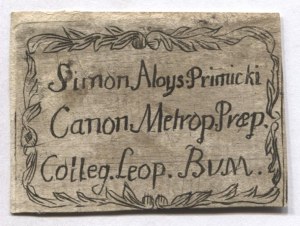 Simon Aloys Primicki
Canon Metrop. Præp.
Colleg. Leop. BVM.